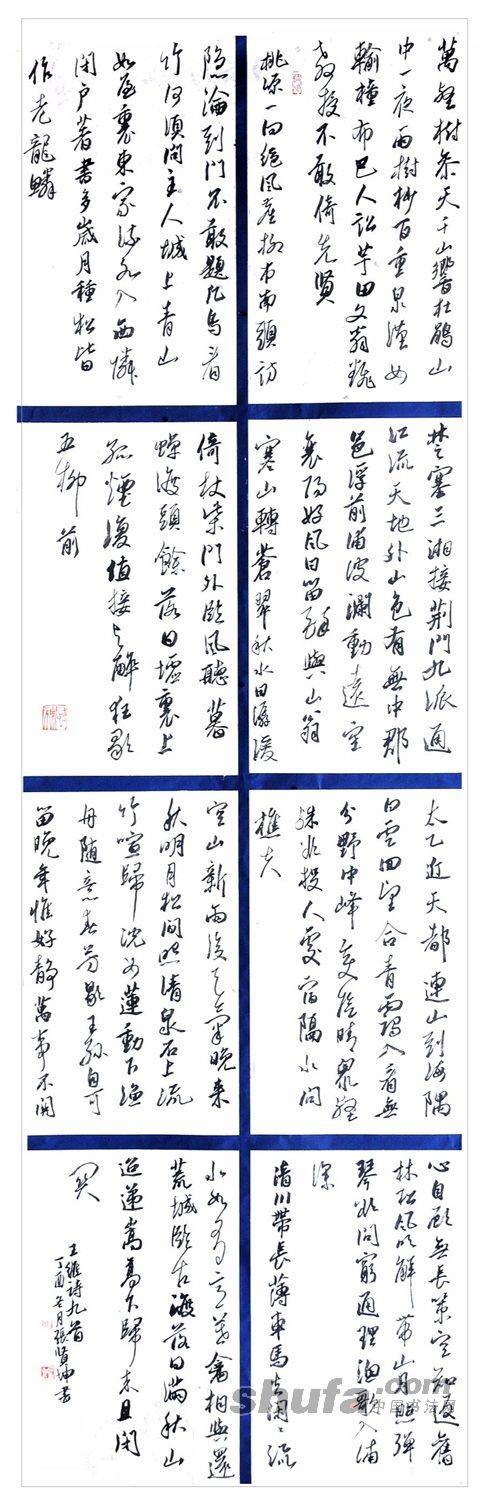 萬壑樹參天千山響杜鵑山
中一夜雨樹杪百重泉漢女
輸橦布巴人訟芋田文翁翻
教授不敢倚先賢
桃源一向絕風塵柳市南頭訪
隐淪到門不敢題凡鳥看
竹何須問主人城上青山
如屋裏東家流水入西憐
閉户著書多歲月種松皆
作老龍鱗
楚塞三湘接荆門九派通
江流天地外山色有無中郡
邑浮前浦波瀾動遠空
襄陽好風日留醉與山翁
寒山轉蒼翠秋水日潺湲
倚杖柴門外臨風聽暮
蟬渡頭餘落日墟裏上
孤煙復值接輿醉狂歌
五柳前
太乙近天都連山到海隅
白雲回望合青靄入看無
分野中峰變陰晴衆壑
殊欲投人處宿隔水問
樵夫
空山新雨後天氣晚来
秋明月松间照清泉石上流
竹喧歸浣女蓮動下漁
舟随意春芳歇王孫自可
留晚年惟好静萬事不関
心自顧無長策空知返舊
林松風吹解带山月照彈
琴君問窮通理漁歌入浦
深
清川帶長薄車馬去閑々流
水如有意暮禽相與還
荒城臨古渡落日滿秋山
迢遞嵩高下歸來且閉
関
王維詩九首
丁酉冬月張賢坤書
shufa.com
中国书法网